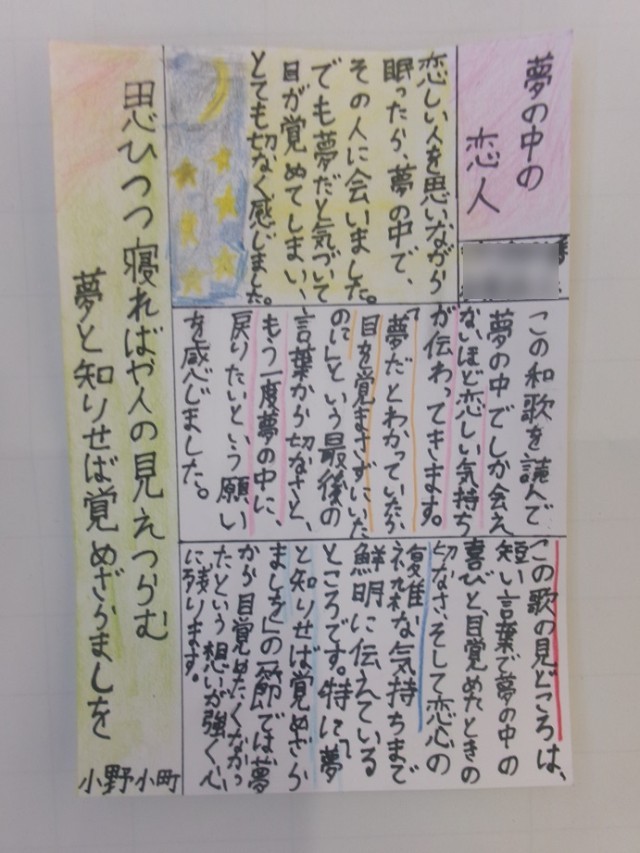 夢の中の
恋人
恋しい人を思いながら
眠ったら、夢の中で、
その人に会いました。
でも夢だと気づいて
目が覚めてしまい、
とても切なく感じました。
この和歌を読んで
夢の中でしか会え
ないほど恋しい気持ち
が伝わってきます。
「夢だとわかっていたら
目を覚まさずにいた
のに」という最後の
言葉から切なさと、
もう一度夢の中に、
戻りたいという願い
を感じました。
この歌の見どころは、
短い言葉で夢の中の
喜びと、目覚めたときの
切なさ、そして恋心の
複雑な気持ちまで
鮮明に伝えている
ところです。特に「夢
と知りせば覚めざら
ましを」の一節では夢
から目覚めたくなかっ
たという想いが強く心
に残ります。
思ひつつ寝ればや人の見えつらむ
夢と知りせば覚めざらましを
小野小町